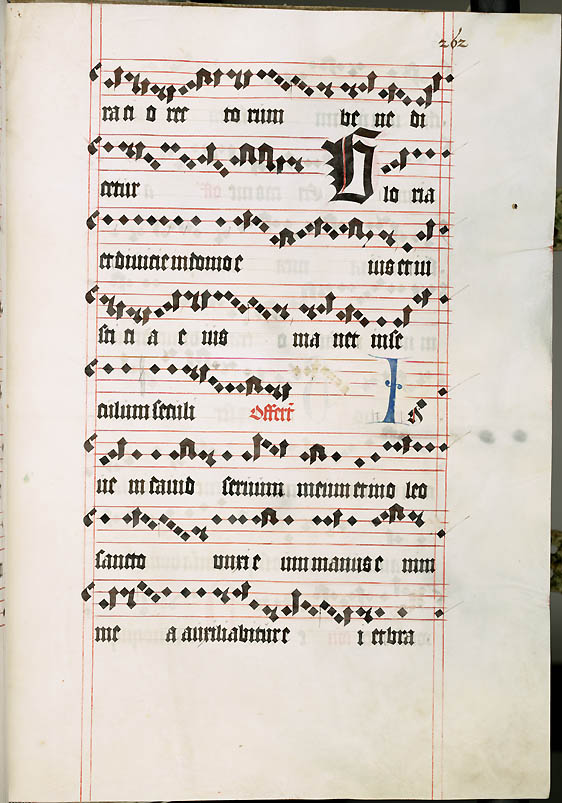 262
ra ti o rec to rum be ne di
cetur Glo ria
et divicie in domo e ius et iu
sti ti a e ius ma net in se
culum seculi Offert In
ve ni david servum meum et in o leo
sancto unxi e um manus e nim
me a auxiliabitur e i et bra